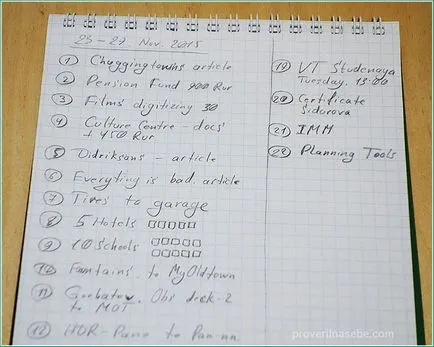 23-27. Nov. 2015
1 Chuggingtowns article
2 Pension Fund 900 Rur
3 Films digitizing 30
4 Culture Centre - docs
+ 450 Rur
5 Didriksons - article
6 Everyting is bad. article
7 Tires to garage
8 5 Hotels
9 10 Schools
10 Fountains. to MyOldtown
11 Gorbatov. Obs deck-2
to MOT
12 HDR-Pano to
19 VT Studenaya
Tuesday. 13:00
20 Certificate
Sidorova
21 IMM
22 Planning Tools
proverilnasebe.com